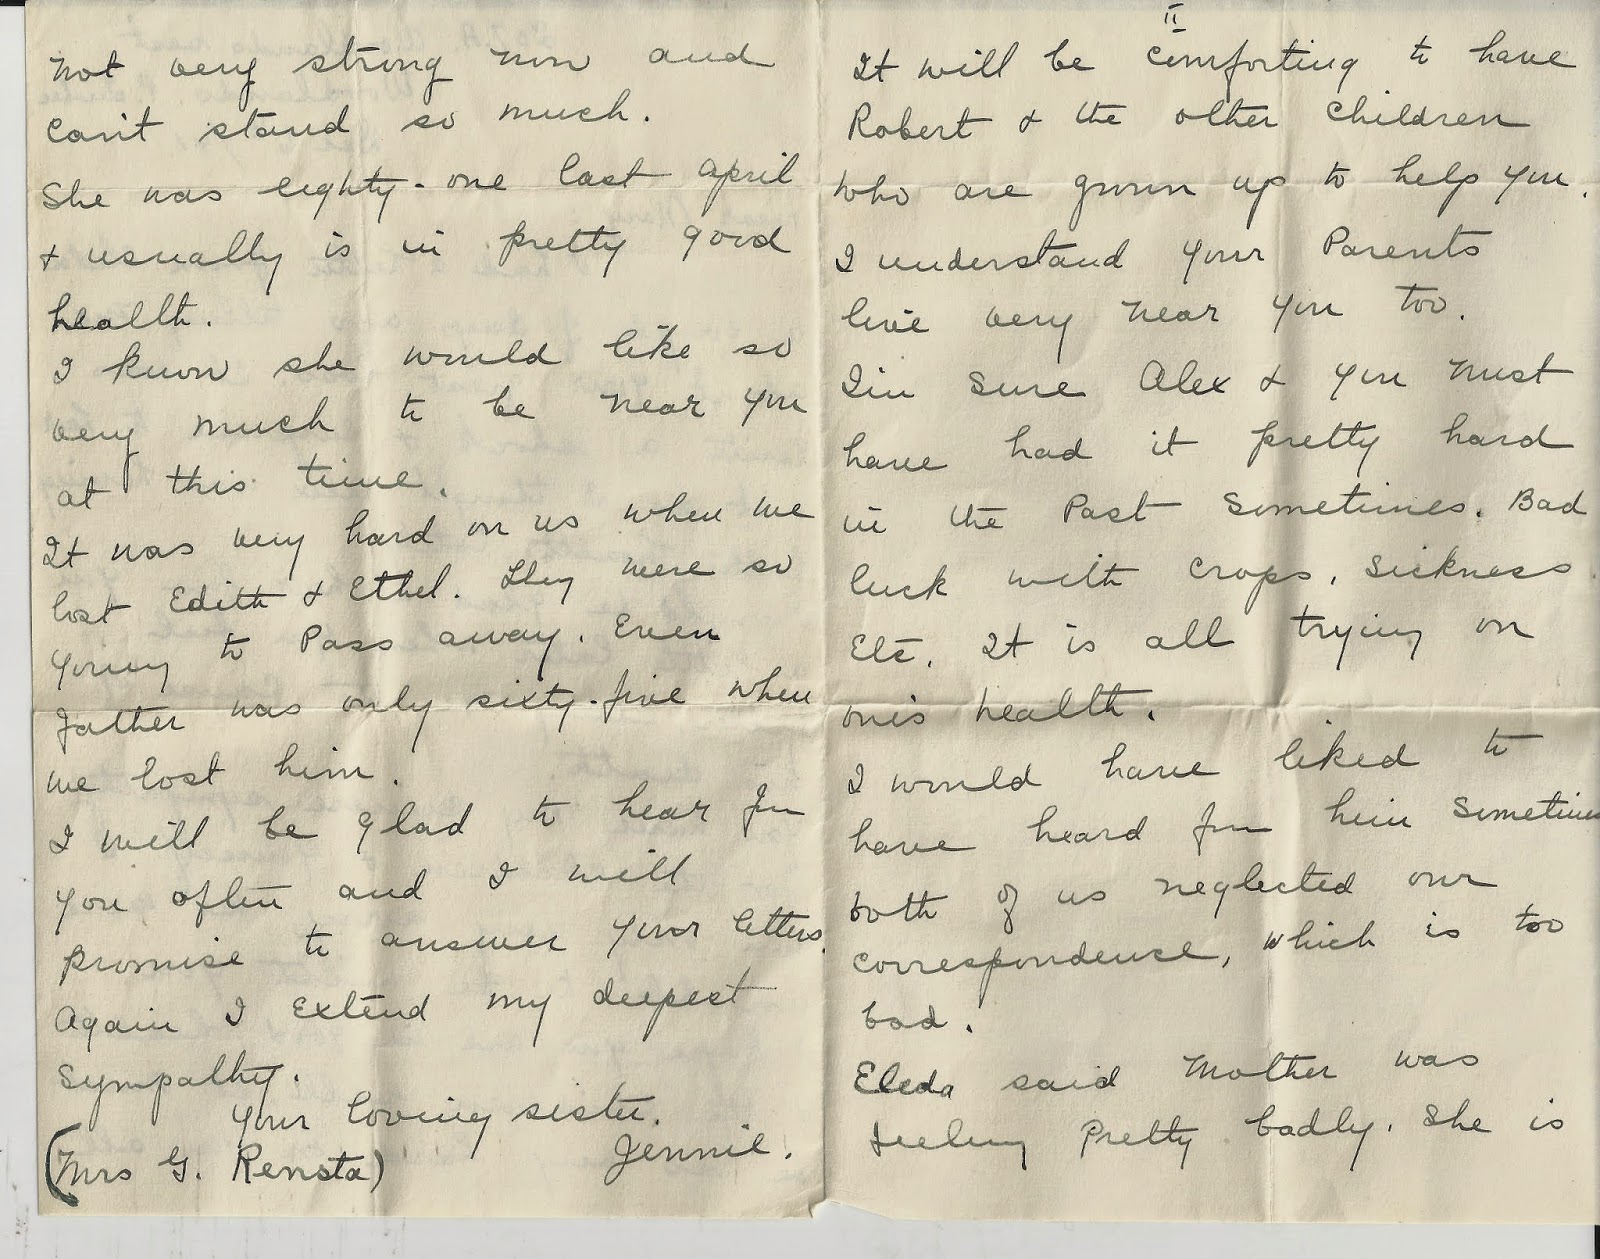 II
It will be comforting to have
Robert & the other children
who are grown up to help you.
I understand your Parents
live very near you too.
I'm sure Alex & you must
have had it pretty hard
in the Past sometimes. Bad
luck with crops, sickness
Etc. It is all trying on
one's health.
I would have liked to
have heard from him sometimes
both of us neglected our
correspondence, which is too
bad.
Eleda said Mother was
feeling pretty badly. She is
not very strong now and
can't stand so much.
She was eighty-one last april
& usually is in pretty good
health.
I know she would like so
very much to be near you
at this time.
It was very hard on us when we
lost Edith & Ethel. They were so
young to Pass away. Even
father was only sixty-five when
we lost him.
I will be glad to hear from
you often and I will
promise to answer your letters.
Again I extend my deepest
sympathy.
Your loving sister.
Jennie.
(Mrs G. Rensta)